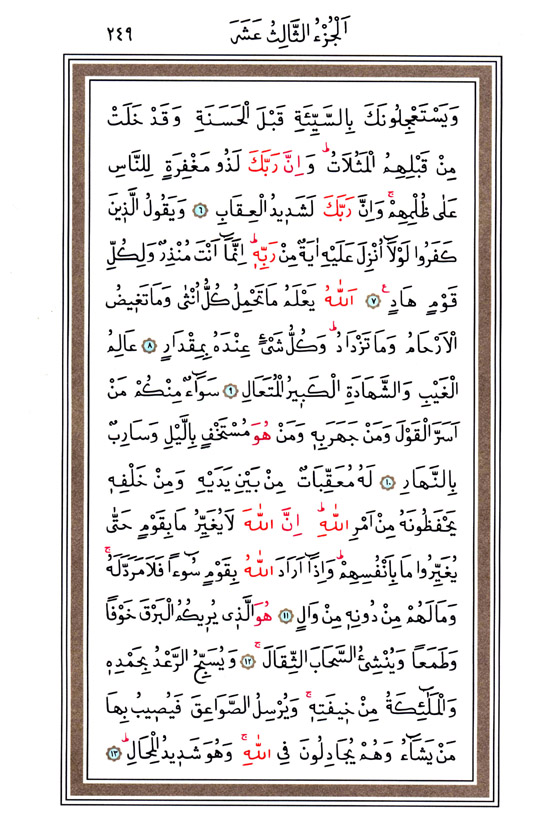 اَلْجُزْءُ الثَّالِثُ عَشَرَ
٢٤٩
وَيَسْتَعْجِلُونَكَ بِالسَّيِّئَةِ قَبْلَ الْحَسَنَةِ وَقَدْ خَلَتْ
مِنْ قَبْلِهِمُ الْمَثُلَاتُۜ وَاِنَّ رَبَّكَ لَذُو مَغْفِرَةٍ لِلنَّاسِ
عَلٰى ظُلْمِهِمْۚ وَاِنَّ رَبَّكَ لَشَدٖيدُ الْعِقَابِ ﴿٦﴾ وَيَقُولُ الَّذٖينَ
كَفَرُوا لَوْلَٓا اُنْزِلَ عَلَيْهِ اٰيَةٌ مِنْ رَبِّهٖۜ اِنَّمَٓا اَنْتَ مُنْذِرٌ وَلِكُلِّ
قَوْمٍ هَادٍࣖ ﴿٧﴾ اَللّٰهُ يَعْلَمُ مَا تَحْمِلُ كُلُّ اُنْثٰى وَمَا تَغٖيضُ
الْاَرْحَامُ وَمَا تَزْدَادُۜ وَكُلُّ شَيْءٍ عِنْدَهُ بِمِقْدَارٍ ﴿٨﴾ عَالِمُ
الْغَيْبِ وَالشَّهَادَةِ الْكَبٖيرُ الْمُتَعَالِ ﴿٩﴾ سَوَٓاءٌ مِنْكُمْ مَنْ
اَسَرَّ الْقَوْلَ وَمَنْ جَهَرَ بِهٖ وَمَنْ هُوَ مُسْتَخْفٍ بِالَّيْلِ وَسَارِبٌ
بِالنَّهَارِ ﴿١٠﴾ لَهُ مُعَقِّبَاتٌ مِنْ بَيْنِ يَدَيْهِ وَمِنْ خَلْفِهٖ
يَحْفَظُونَهُ مِنْ اَمْرِ اللّٰهِۜ اِنَّ اللّٰهَ لَا يُغَيِّرُ مَا بِقَوْمٍ حَتّٰى
يُغَيِّرُوا مَا بِاَنْفُسِهِمْۜ وَاِذَٓا اَرَادَ اللّٰهُ بِقَوْمٍ سُٓوءًا فَلَا مَرَدَّ لَهُۚ
وَمَا لَهُمْ مِنْ دُونِهٖ مِنْ وَالٍ ﴿١١﴾ هُوَ الَّذٖي يُرٖيكُمُ الْبَرْقَ خَوْفًا
وَطَمَعًا وَيُنْشِئُ السَّحَابَ الثِّقَالَۚ ﴿١٢﴾ وَيُسَبِّحُ الرَّعْدُ بِحَمْدِهٖ
وَالْمَلٰٓئِكَةُ مِنْ خٖيفَتِهٖۚ وَيُرْسِلُ الصَّوَاعِقَ فَيُصٖيبُ بِهَا
مَنْ يَشَٓاءُ وَهُمْ يُجَادِلُونَ فِي اللّٰهِۚ وَهُوَ شَدٖيدُ الْمِحَالِۜ ﴿١٣﴾